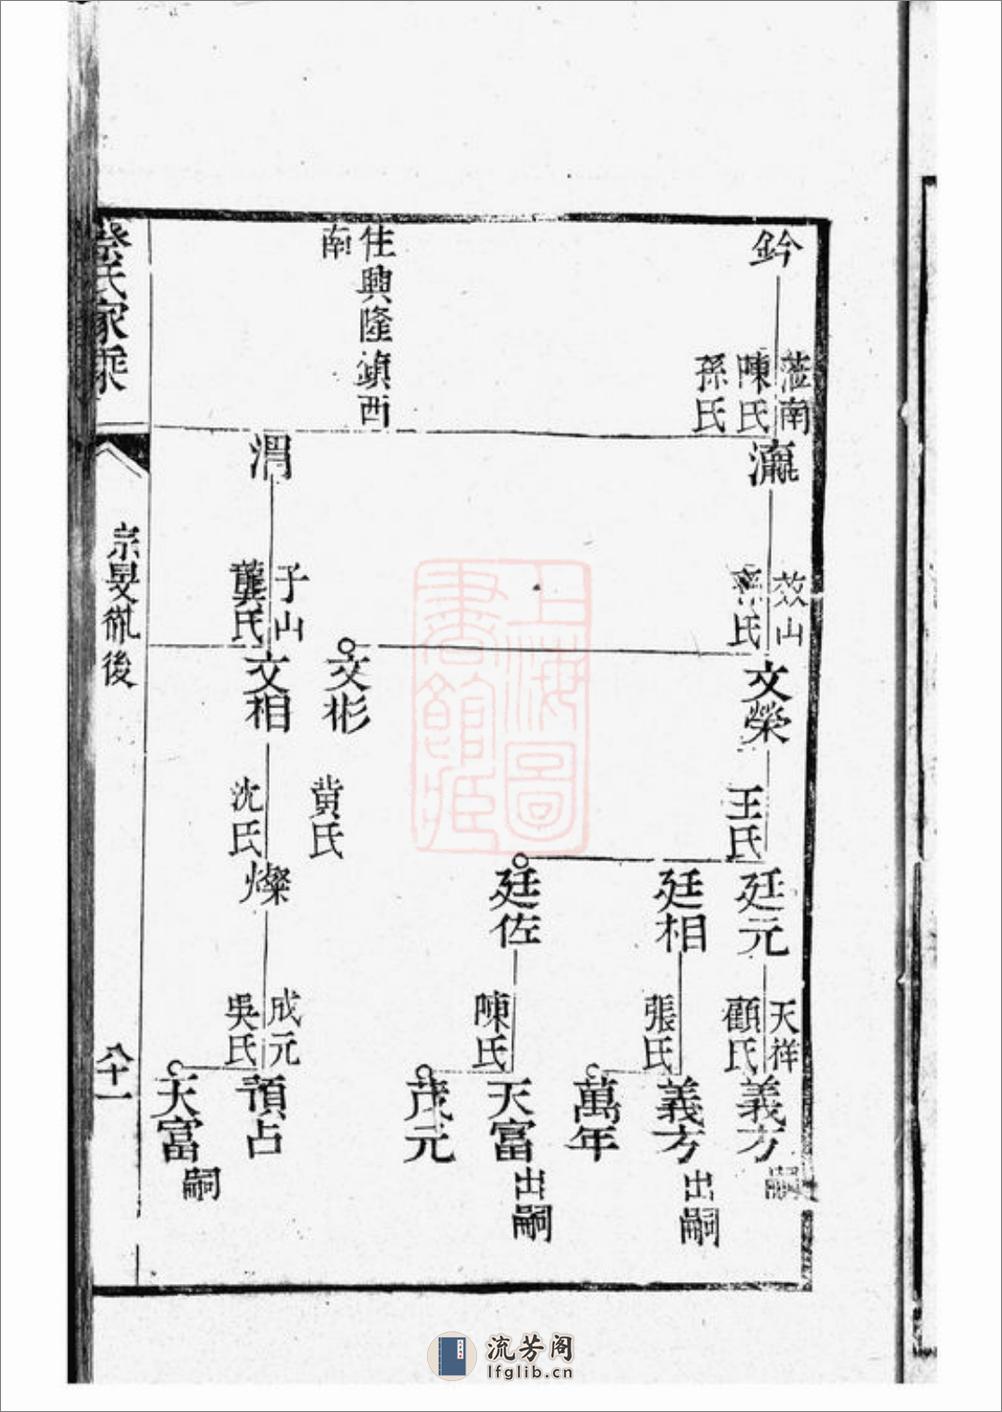 鈐
蓝南
陳氏
孫氏
住興隆鎮西
南
瀛
效山
孫氏
渭
子山
龔氏
文榮
王氏
文彬
黄氏
文相
沈氏
廷元
天祥
顧氏
廷相
張氏
廷佐
陳氏
燦
成元
吳氏
義方
嗣
義方
出嗣
萬年
天富
出嗣
茂元
預占
天富
嗣
氏家乘
宗旻
後
八十一
上海圖
書館藏
流芳阁
lfglib.cn